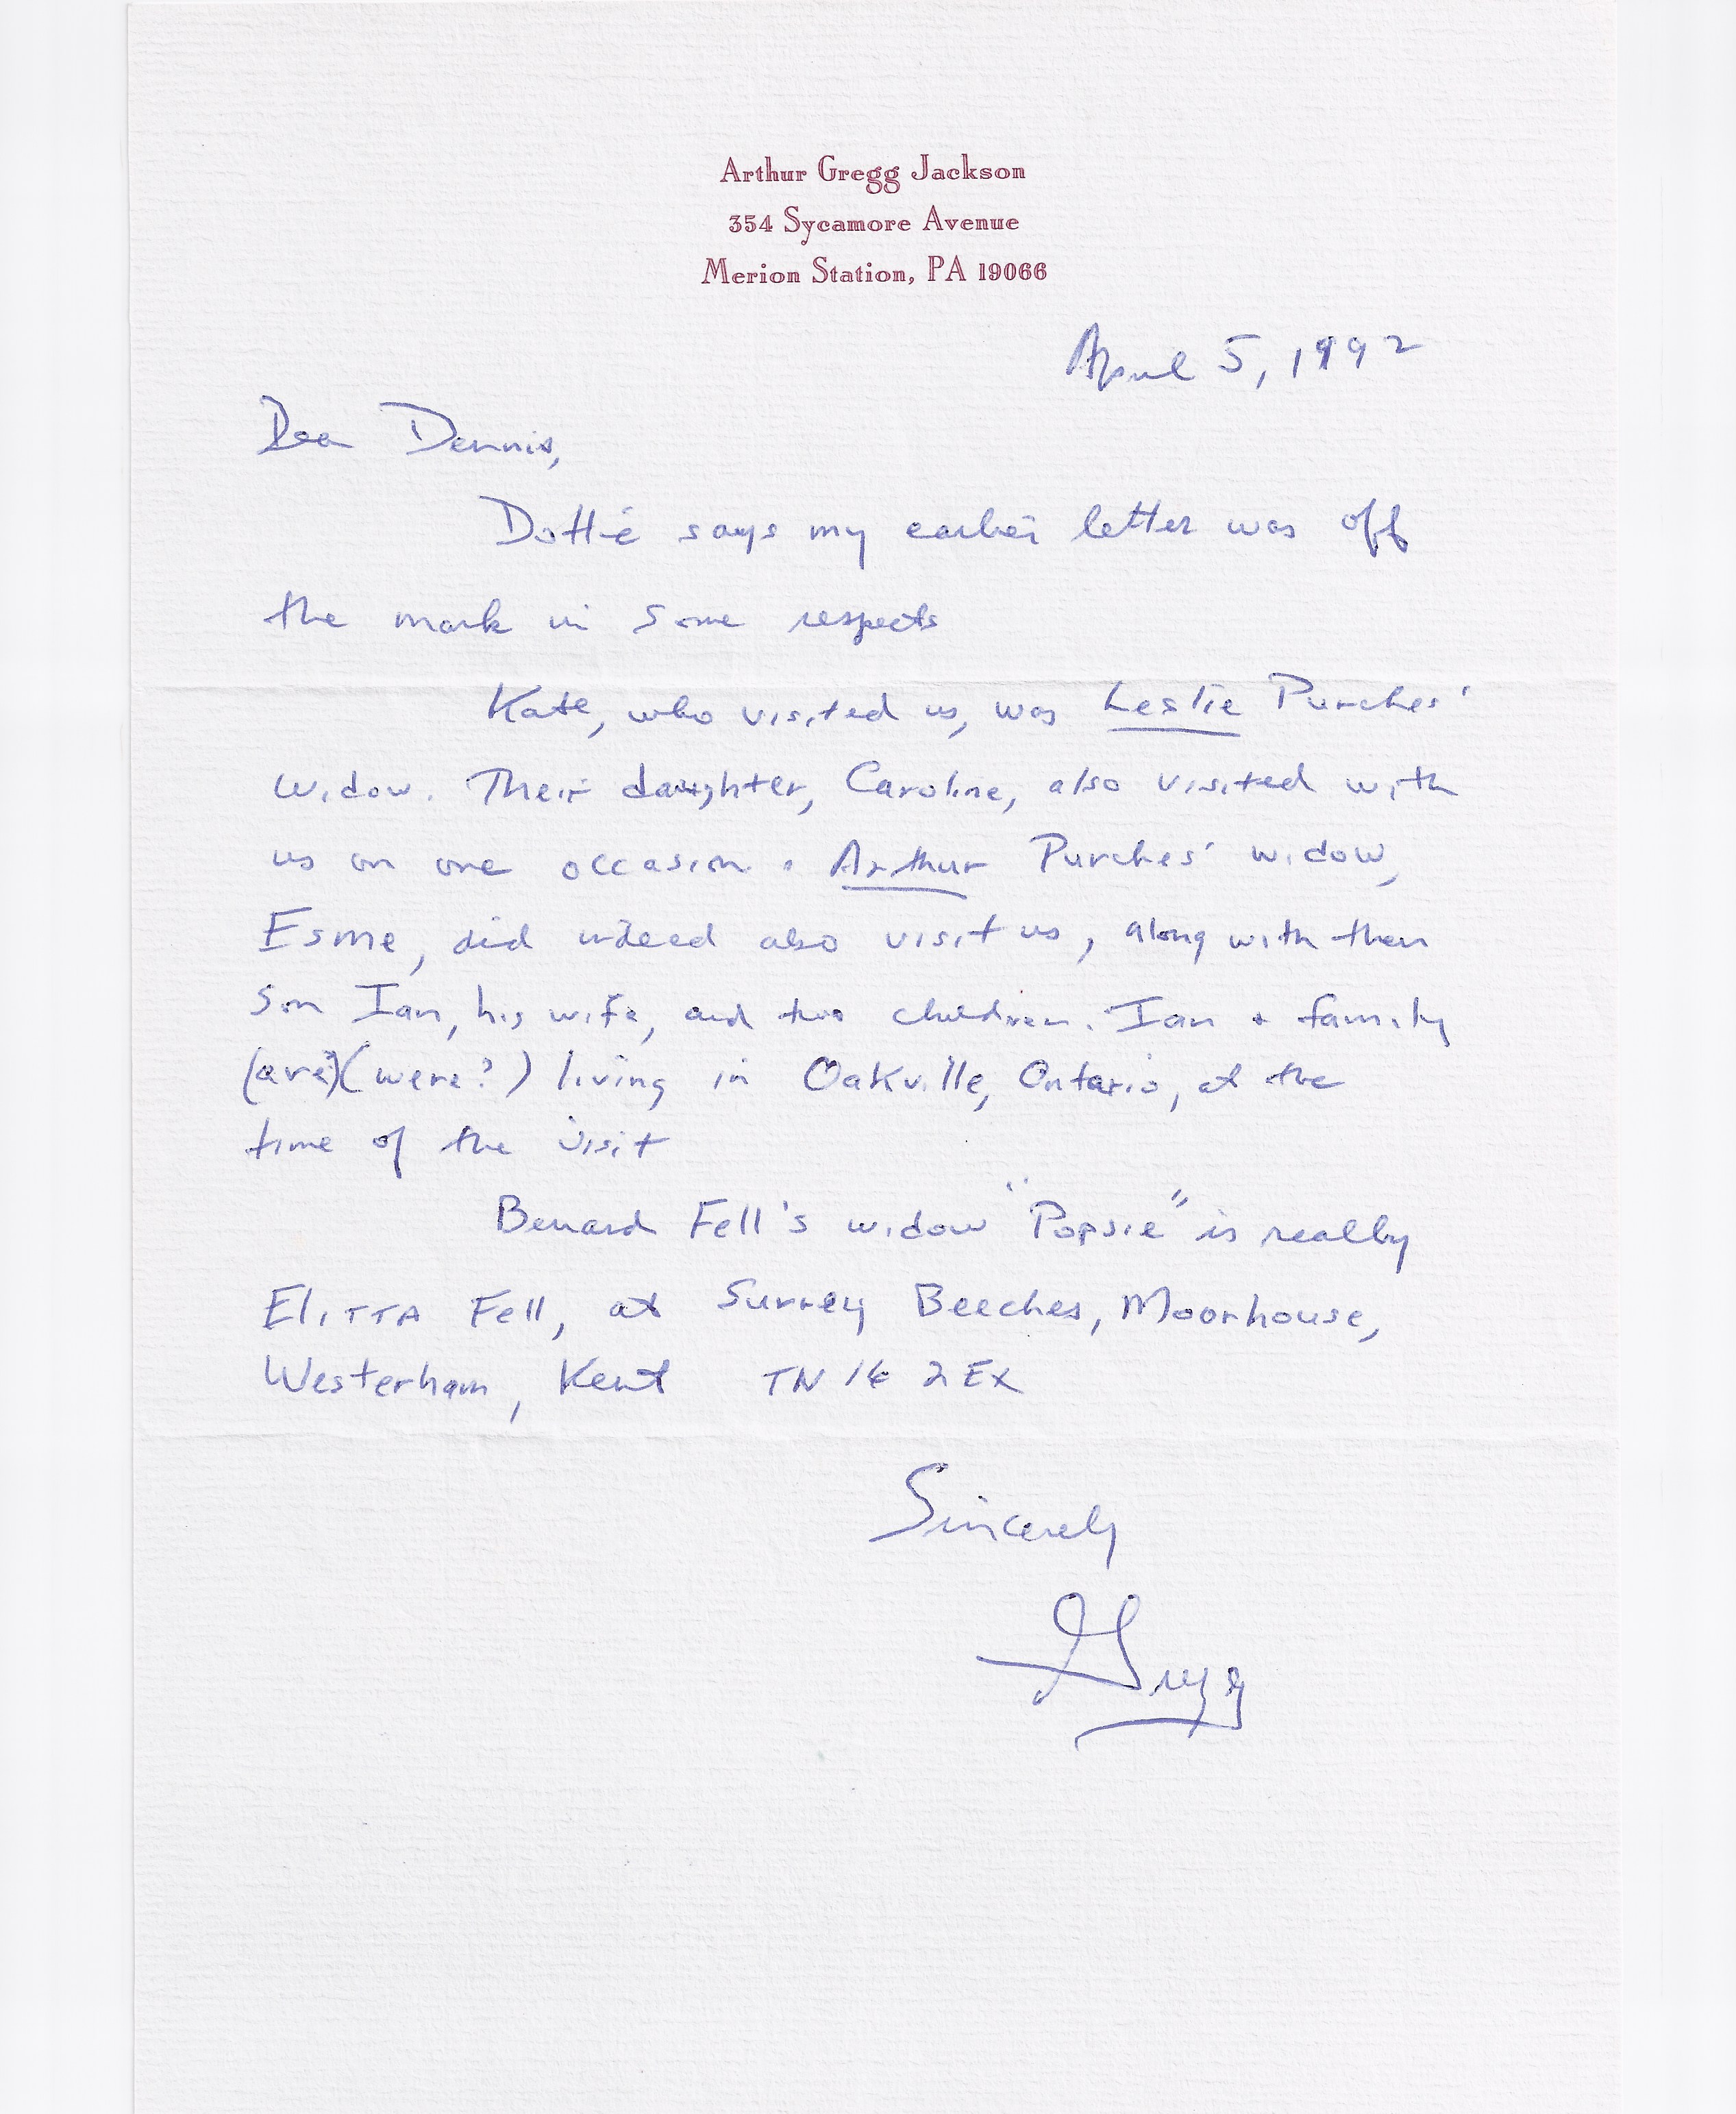 Arthur Gregg Jackson
354 Sycamore Avenue
Merion Station, PA 19066
April 5, 1992
Dear Dennis,
Dottie says my earlier letter was off
the mark in some respects
Kate, who visited us, was Leslie Purches'
widow. Their daughter, Caroline, also visited with
us on one occasion. Arthur Purches' widow,
Esme, did indeed also visit us, along with their
son Ian, his wife, and two children. Ian + family
(are?)(were?) living in Oakville, Ontario, at the
time of the visit
Benard Fell's widow "Popsie" is really
Elitta Fell, at Surrey Beeches, Moorhouse,
Westerham, Kent TN 16 2EX
Sincerely
Gregg